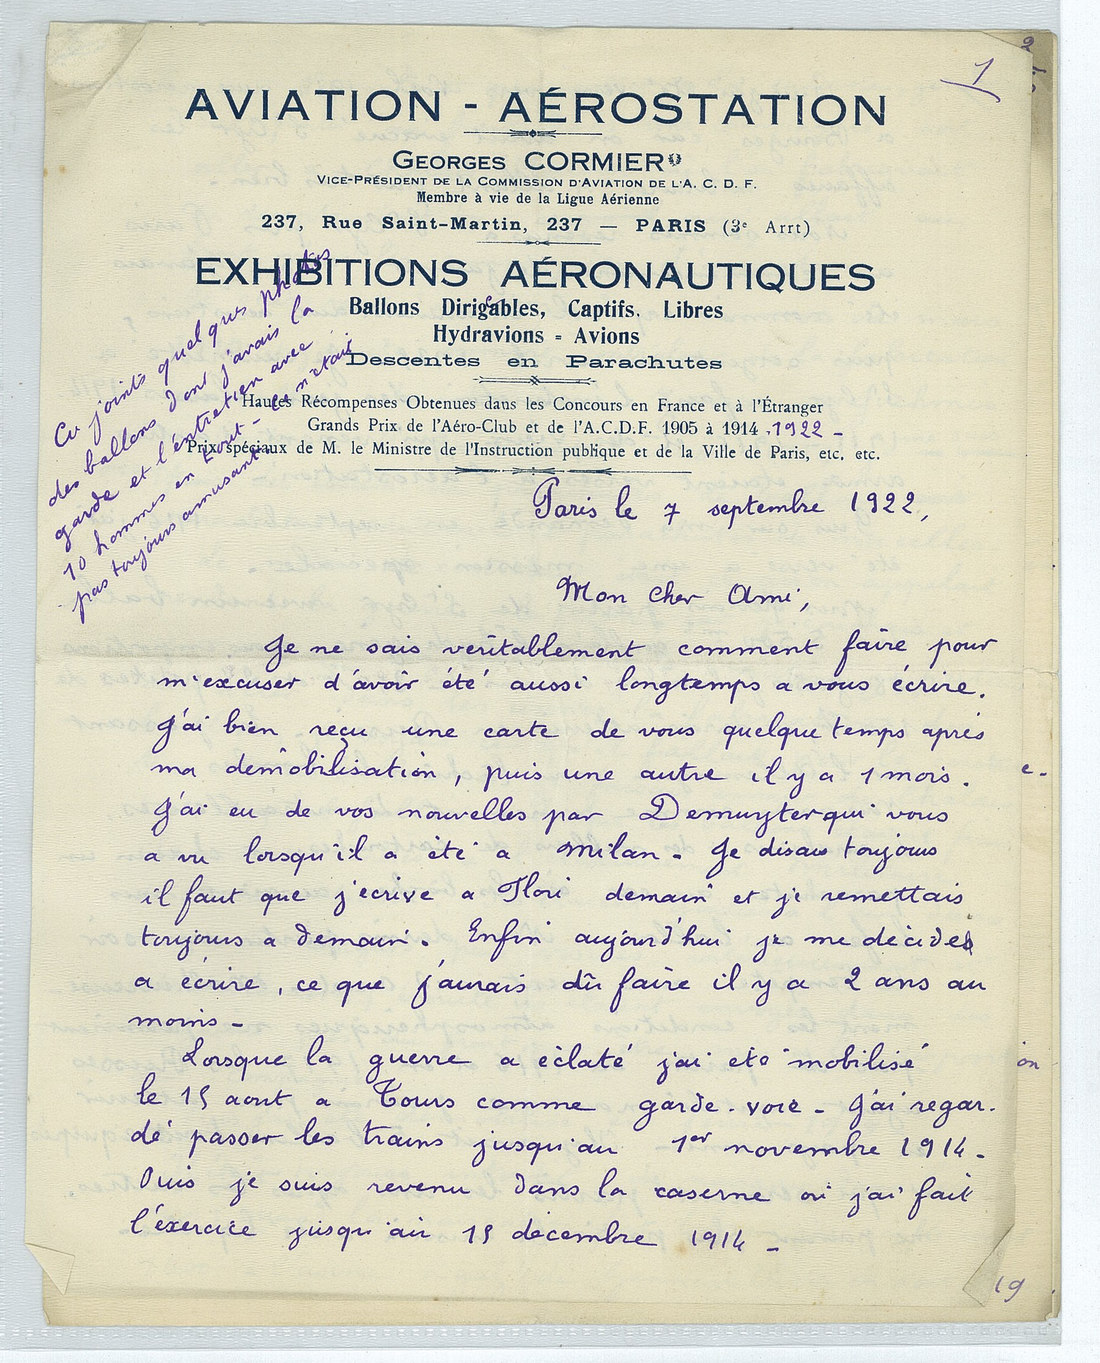 1
AVIATION - AÉROSTATION
GEORGES CORMIER
VICE-PRÉSIDENT DE LA COMMISSION D'AVIATION DE L'A. C. D. F.
Membre à vie de la Ligue Aérienne
237, Rue Saint-Martin, 237 — PARIS (3e Arrt)
EXHIBITIONS AÉRONAUTIQUES
Ballons Dirigeables, Captifs, Libres
Hydravions - Avions
Descentes en Parachutes
Hautes Récompenses Obtenues dans les Concours en France et à l'Étranger
Grands Prix de l'Aéro-Club et de l'A.C.D.F. 1905 à 1914 .1922 -
Prix spéciaux de M. le Ministre de l'Instruction publique et de la Ville de Paris, etc. etc.
Ci joints quelques photos
des ballons dont j'avais la
garde et l'entretien avec
10 hommes en tout - ce n'était
pas toujours amusant -
Paris le 7 septembre 1922,
Mon cher Ami,
Je ne sais veritablement comment faire pour
m'excuser d'avoir été aussi longtemps a vous écrire.
J'ai bien reçu une carte de vous quelque temps après
ma démobilisation, puis une autre il y a 1 mois.
J'ai eu de vos nouvelles par Demuyter qui vous
a vu lorsqu'il a été a Milan - Je disais toujours
il faut que j'ecrive a Flori demain et je remettais
toujours a demain. Enfin aujourd'hui je me décides
a écrire, ce que j'aurais dû faire il y a 2 ans au
moins -
Lorsque la guerre a éclaté j'ai eté mobilisé
le 15 aout a Tours comme garde-voie - J'ai regar-
dé passer les trains jusqu'au 1er novembre 1914 -
Puis je suis revenu dans la caserne où j'ai fait
l'exercice jusqu'au 15 décembre 1914 -